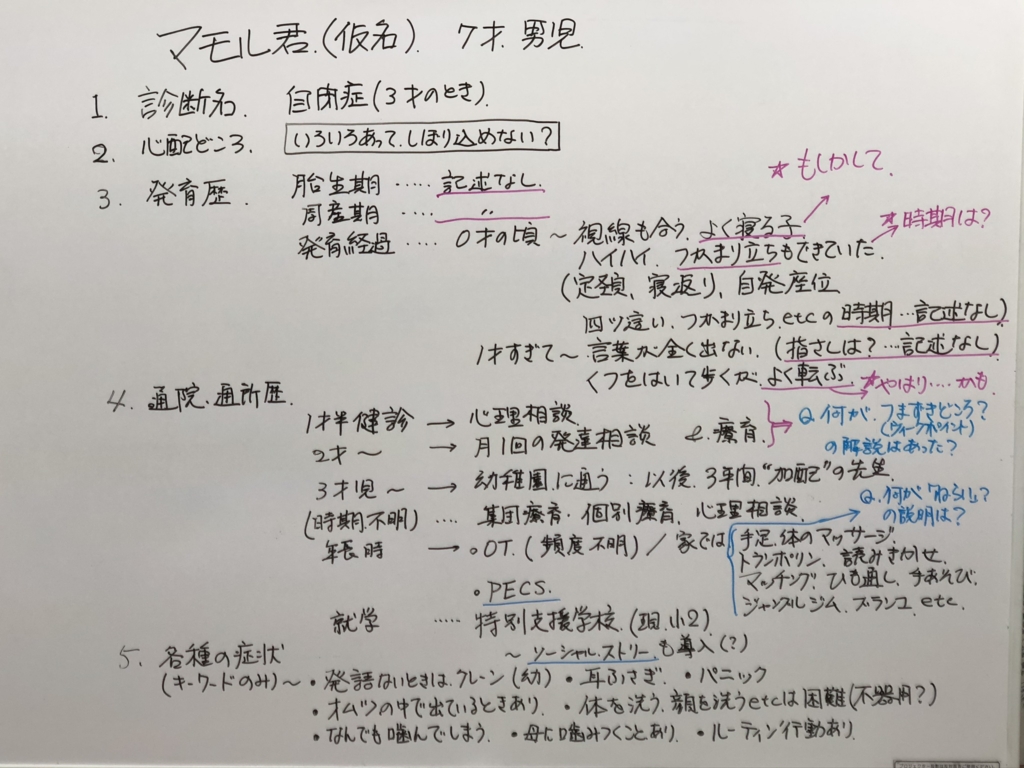 マモル君.(仮名). 7才. 男児.
1. 診断名. 自閉症(3才のとき).
2. 心配どころ. いろいろあって.しぼり込めない?
3. 発育歴. 胎生期 ····· 記述なし.
☆もしかして.
周産期 ····· 〃
発育経過 ···· 0才の頃 ~ 視線も合う. よく寝る子
☆時期は?
ハイハイ. つかまり立ちもできていた.
(定頚、寝返り、自発座位
四ツ這い.つかまり立ち.etcの時期…記述なし)
1才すぎて~ 言葉が全く出ない. (指さしは?…記述なし)
くつをはいて歩くが.よく転ぶ. ☆やはり....かも
4. 通院.通所歴.
1才半健診 → 心理相談
2才~ → 月1回の発達相談 &.療育.
→ Q.何が.つまずきどころ?
(ウィークポイント)
の解説はあった?
3才児~ → 幼稚園に通う:以後.3年間"加配"の先生
(時期不明) ···· 集団療育·個別療育、心理相談.
→ Q.何が「ねらい」?
の説明は?
年長時 → ○OT.(頻度不明)/家では
手足.体のマッサージ.
トランポリン、読みきかせ
マッチング、ひも通し、手あそび、
ジャングルジム、ブランコ etc.
・PECS.
就学 ····· 特別支援学校.(現.小2)
~ ソーシャル.ストリーも導入(?)
5. 各種の症状
(キーワードのみ)~ ・発語ないときは.クレーン(幼) ・耳ふさぎ. ・パニック
・オムツの中で出ているときあり. ・体を洗う.顔を洗うetcは困難(不器用?)
・なんでも噛んでしまう. ・母に噛みつくことあり. ・ルーティン行動あり.